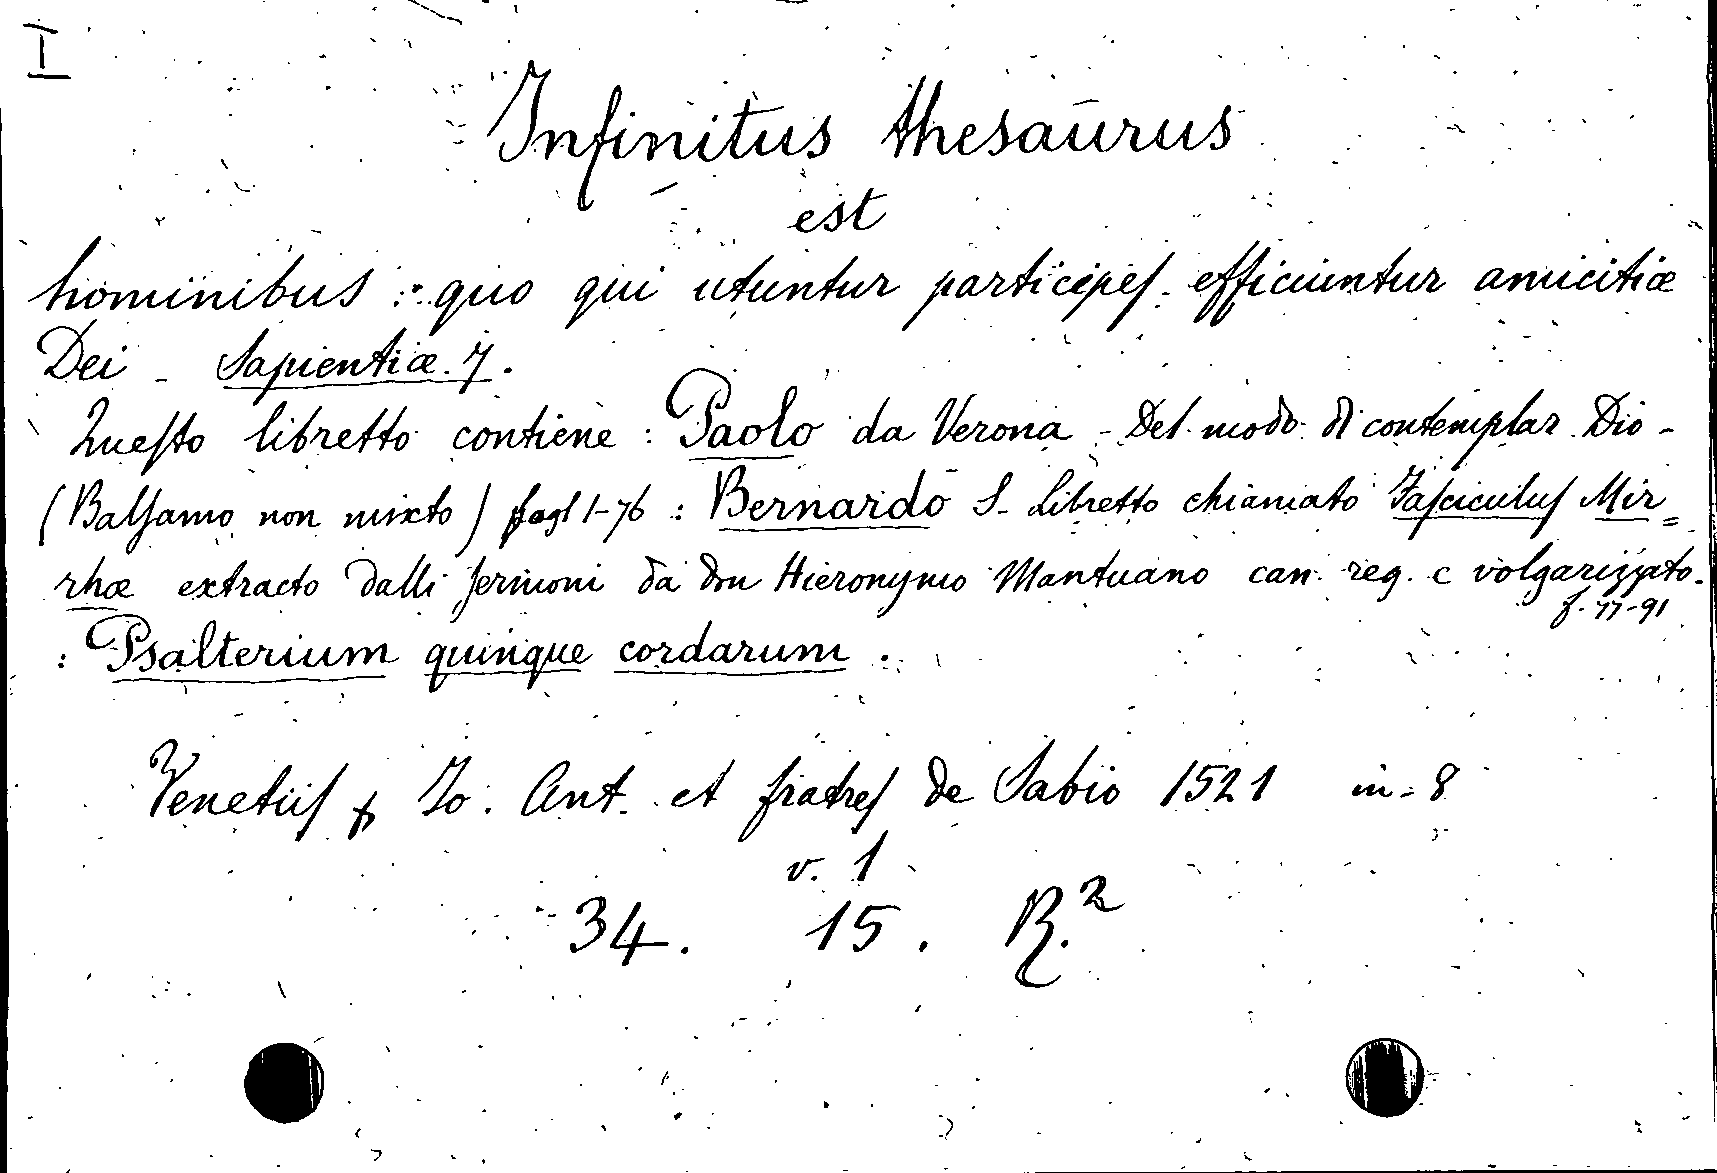 I
Infinitus thesaurus
est
hominibus : quo qui utuntur participes efficiuntur amicitiæ
Dei - Sapientiæ. 7.
Questo libretto contiene : Paolo da Verona - Del modo di contemplar Dio -
(Balsamo non mixto) fogl 1-76 : Bernardo S. Libretto chiamato Fasciculus Mir=
rhæ extracto dalli sermoni da don Hieronymo Mantuano can. reg. e volgarizzato.
f. 77-91
: Psalterium quinque cordarum.
Venetiis p Io. Ant. et fratres de Sabio 1521 in-8
v. 1
34. 15. R.²